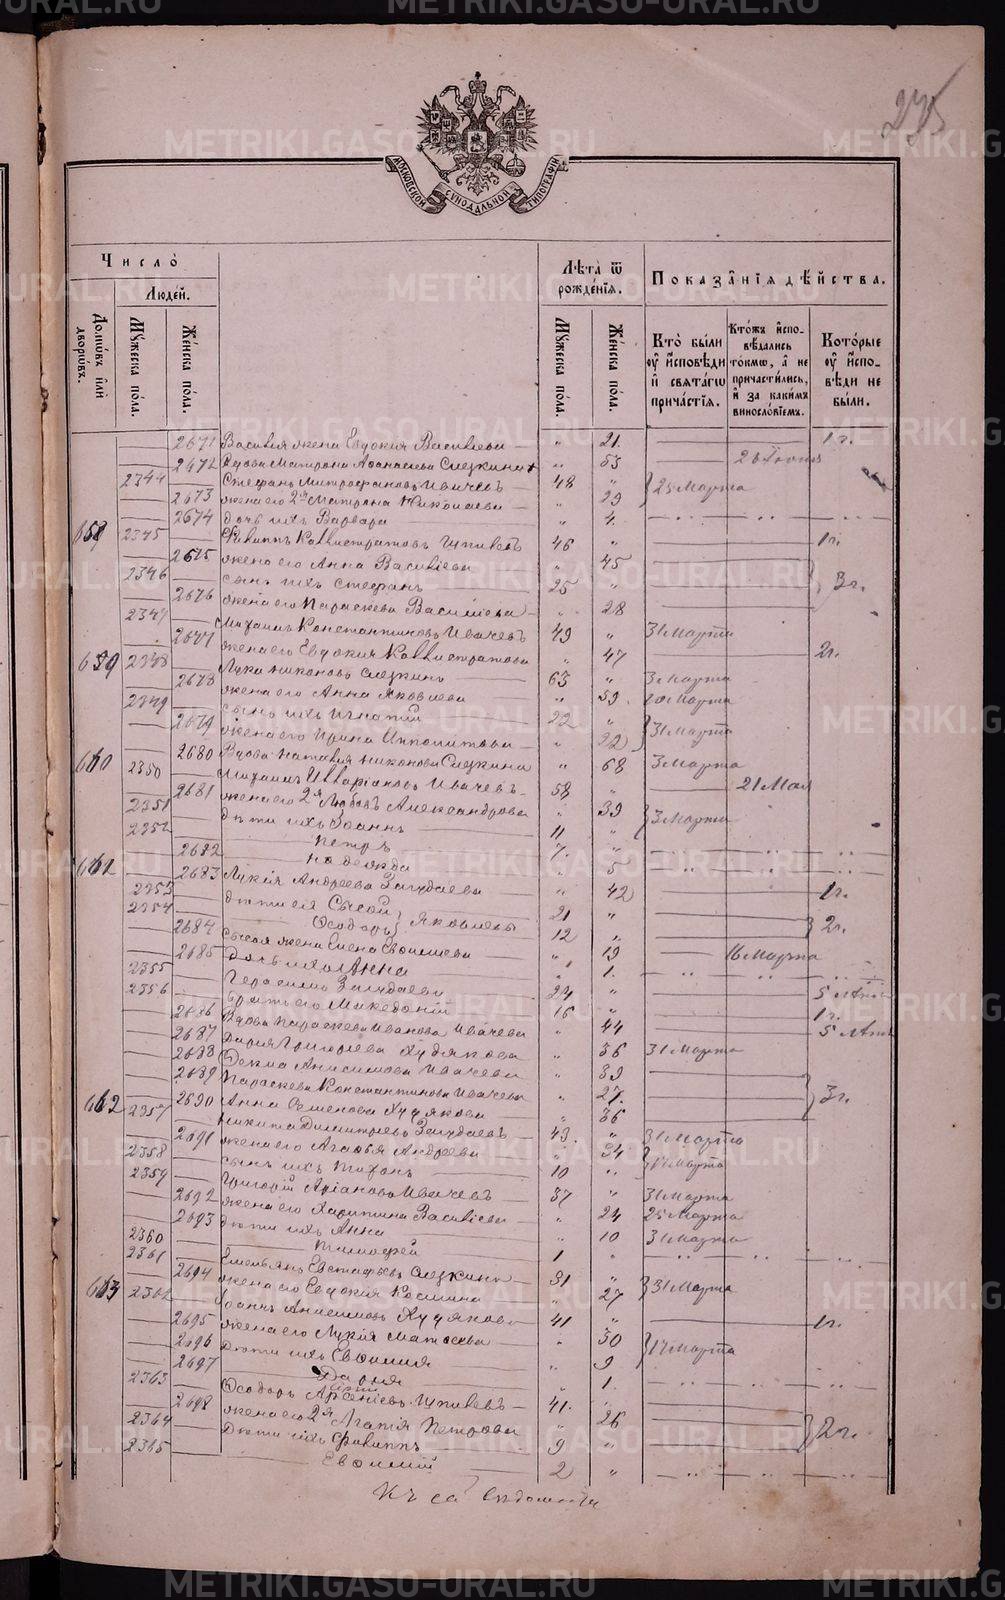 275
МОСКОВСКОЙ СѴНОДАЛЬНОЙ ТИПОГРАФІИ
Число̀
Людѐй.
Домѡвъ и҆лѝ дворѡвъ.
Мꙋжеска пола.
Женска пола.
Лѣта̀ ѿ рожденїѧ.
Мꙋжеска пола.
Женска пола.
Показанїѧ дѣйства.
Кто̀ были оу҆ и҆сповѣди и҆ свѧтагѡ причастїѧ.
Ктожъ и҆сповѣдались токмѡ, а҆ не причастились, и҆ за какимъ винословїемъ.
Которые оу҆ и҆сповѣди не были.
2671 Василія жена Евдокия Василіева " 21. 1 г.
2672 Вдова Матрона Аѳанасіева Слезкина " 53 26 Іюня
2344 Стефанъ Митрофановъ Ивачевъ 48 " 25 Марта
2673 жена его 2я Матрона Николаева " 29
2674 дочь ихъ Варвара " 4.
658 2345 Филиппъ Каллистратовъ 46 " 1 г.
2675 жена его Анна Василіева " 45
2346 сынъ ихъ Стефанъ 25 " 3 г.
2676 жена его Параскева Василіева " 28
2347 Михаилъ Константиновъ Ивачевъ 49 " 31 Марта
2677 жена его Евдокия Каллистратова " 47 2 г.
659 2348 Лука Никоновъ Слезкинъ 63 " 3 Марта
2678 жена его Анна Яковлева " 59 20 Марта
2349 сынъ ихъ Игнатій 22 " 31 Марта
2679 жена его Ирина Ипполитова " 22
2680 Вдова Наталия Никонова Слезкина " 68 3 Марта
660 2350 Михаилъ Илларіоновъ Ивачевъ 58 " 21 Мая
2681 жена его 2я Любовь Александрова " 39 3 Марта
2351 дѣти ихъ Іоаннъ 11 "
2352 Петръ 7. "
2682 Надежда " 5
661 2683 Лукія Андреева Загудаева " 42 1 г.
2353 дѣти ея Сысой 21 " 2 г.
2354 Ѳеодоръ } Яковлевы 12 "
2684 Сысоя жена Елена Евѳимиева " 19 16 Марта
2685 дочь ихъ Анна " 1.
2355 Герасимъ Загудаевъ 24 " 5 лѣтъ
2356 братъ его Македоній 16 " 1 г.
2686 Вдова Параскева Иванова Ивачева " 44 5 лѣтъ
2687 Дария Григориева Худякова " 36 31 Марта
2688 Ѳекла Анисимова Ивачева " 39
2689 Параскева Константинова Ивачева " 27. 3 г.
2690 Анна Семенова Худякова " 36
662 2357 Никита Димитріевъ Загудаевъ 43. " 31 Марта
2691 жена его Агаѳья Андреева " 34 17 Марта
2358 сынъ ихъ Тихонъ 10 "
2359 Григорій Аріановъ Ивачевъ 37 " 31 Марта
2692 жена его Харитина Василіева " 24 25 Марта
2693 дѣти ихъ Анна " 10 31 Марта
2360 Тимофей 1 "
2361 Емельянъ Евстафьевъ Слезкинъ 31 " 31 Марта
2694 жена его Евдокия Козмина " 27
663 2362 Іоаннъ Анисимовъ Худяковъ 41 " 1 г.
2695 жена его Лукія Матѳеева " 30 17 Марта
2696 Дѣти ихъ Евѳимия " 9
2697 Дария " 1.
2363 Ѳеодоръ Арсеніевъ 41. "
2698 жена его 2я Агапія Петрова " 26 2 г.
2364 Дѣти ихъ Филиппъ 9 "
2365 Евѳимій 2 "